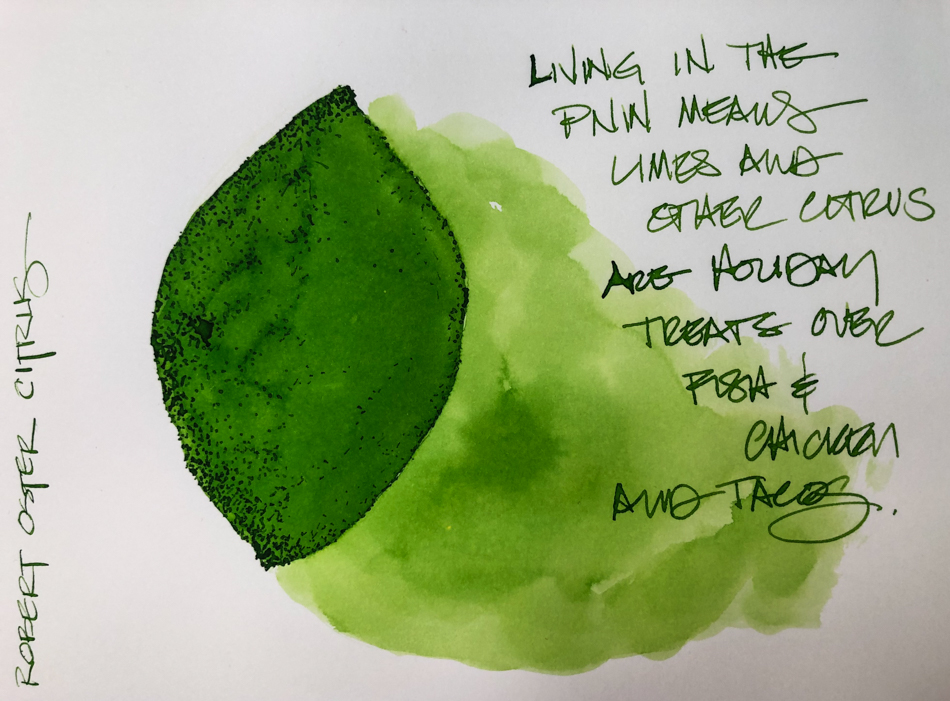 LIVING IN THE
PNW MEANS
LIMES AND
OTHER CITRUS
ARE HOLIDAY
TREATS OVER
FISH &
CHICKEN
AND TACOS.
ROBERT OSTER CITRUS